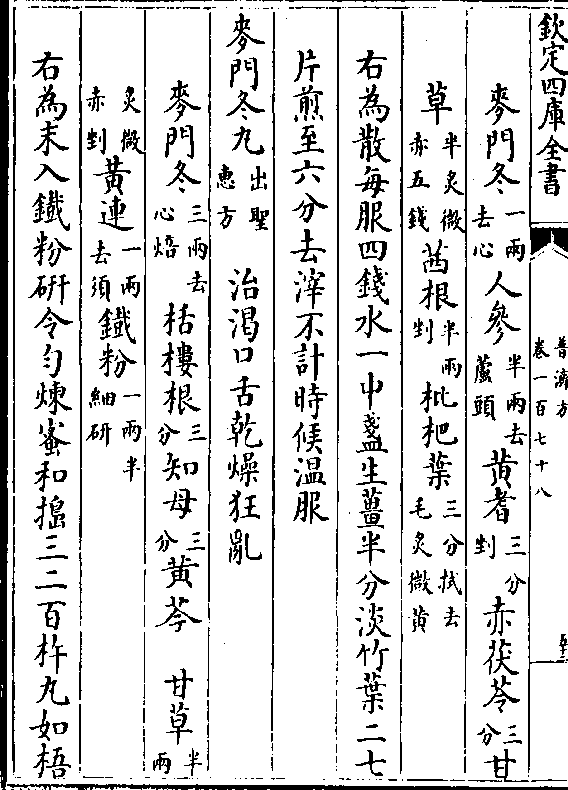 欽定四庫全書
普濟方
卷一百七十八
麥門冬一兩去心 人參半兩去蘆頭 黃耆三分剉 赤茯苓三分 甘
草半炙微赤五錢 茜根半兩剉 枇杷葉三分拭去毛炙微黃
右為散每服四錢水一中盞生薑半分淡竹葉二七
片煎至六分去滓不計時候温服
麥門冬丸出聖惠方 治渴口舌乾燥狂亂
麥門冬三兩去心焙 栝樓根三分 知母三分 黃芩 甘草半兩
炙微赤剉 黃連一兩去須 鐵粉一兩半細研
右為末入鐵粉研令勻煉蜜和搗三二百杵丸如梧